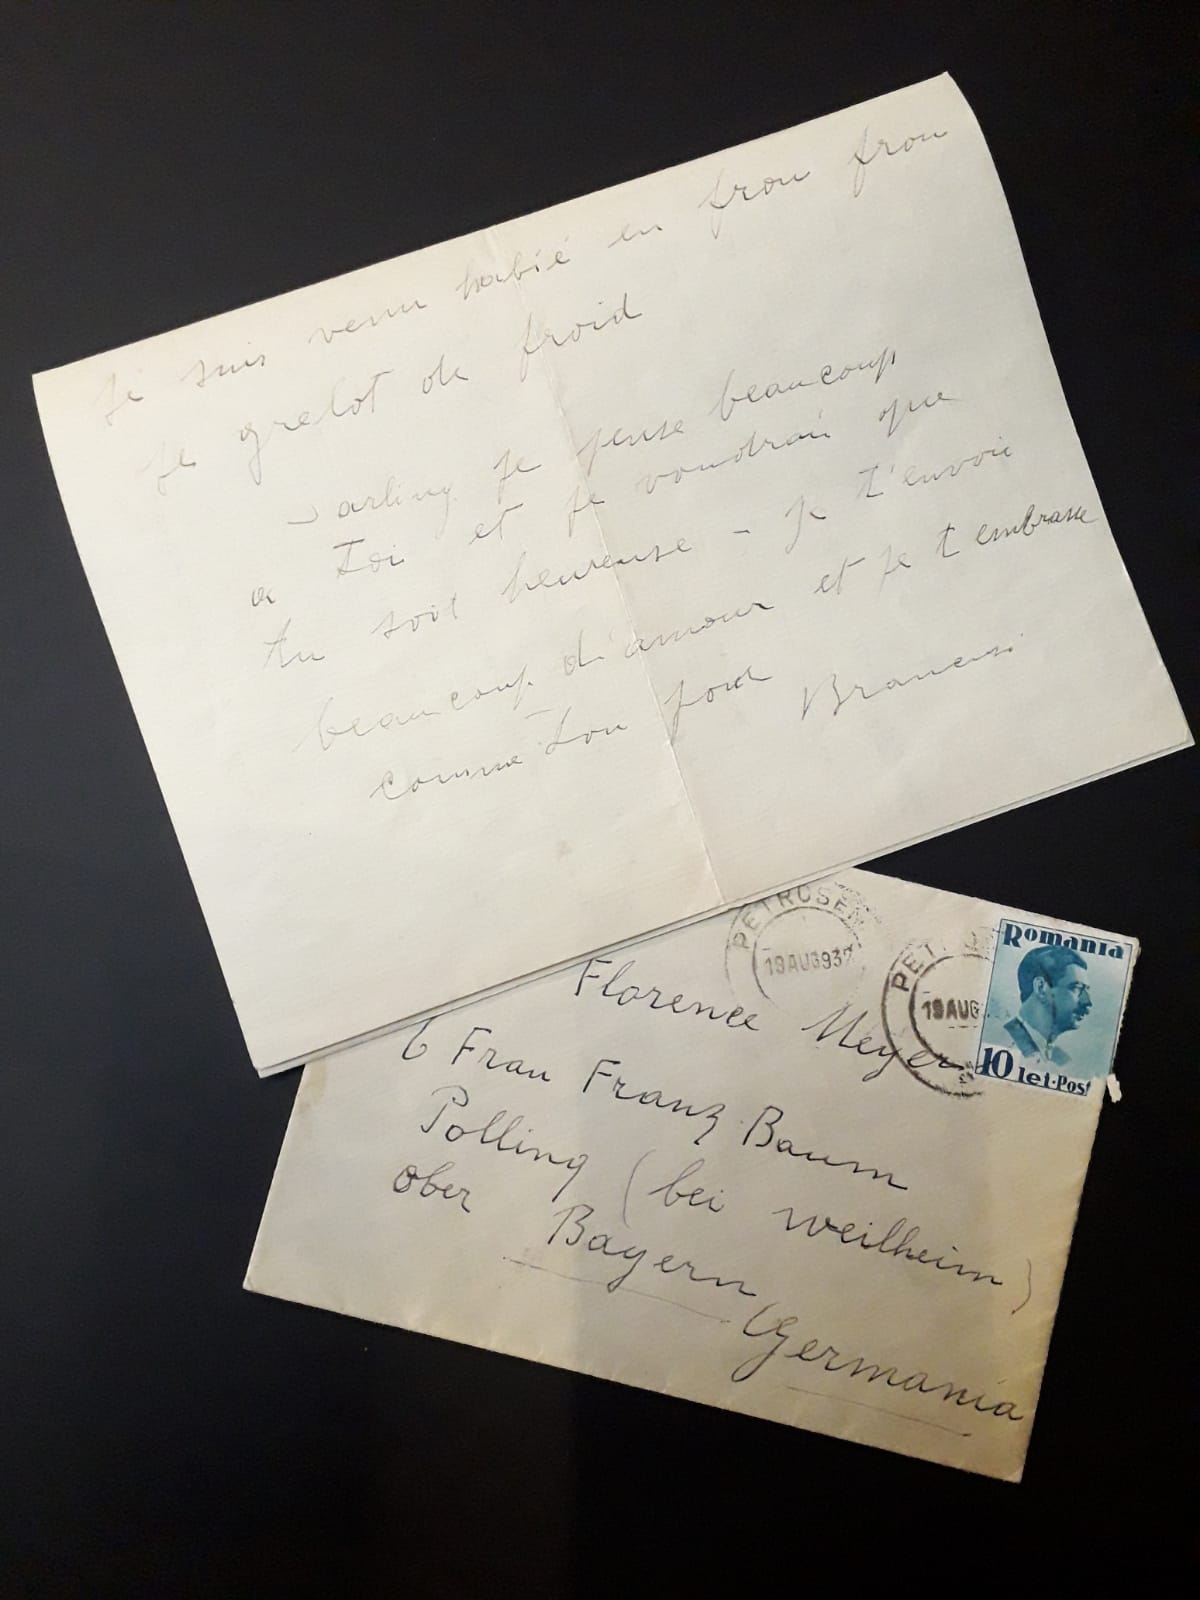 Je suis venu habié en frou frou
je grelot de froid
Darling je pense beaucoup
a toi et je voudrais que
tu soit heureuse - Je t'envoie
beaucoup d'amour et je t embrasse
comme ton
Brancusi
PETROSENI
19 AUG 937
PET
19 AUG
Romania
10 lei·Post
Florence Meyer
Frau Franz Baum
Polling (bei weilheim)
Ober Bayern
(Germania